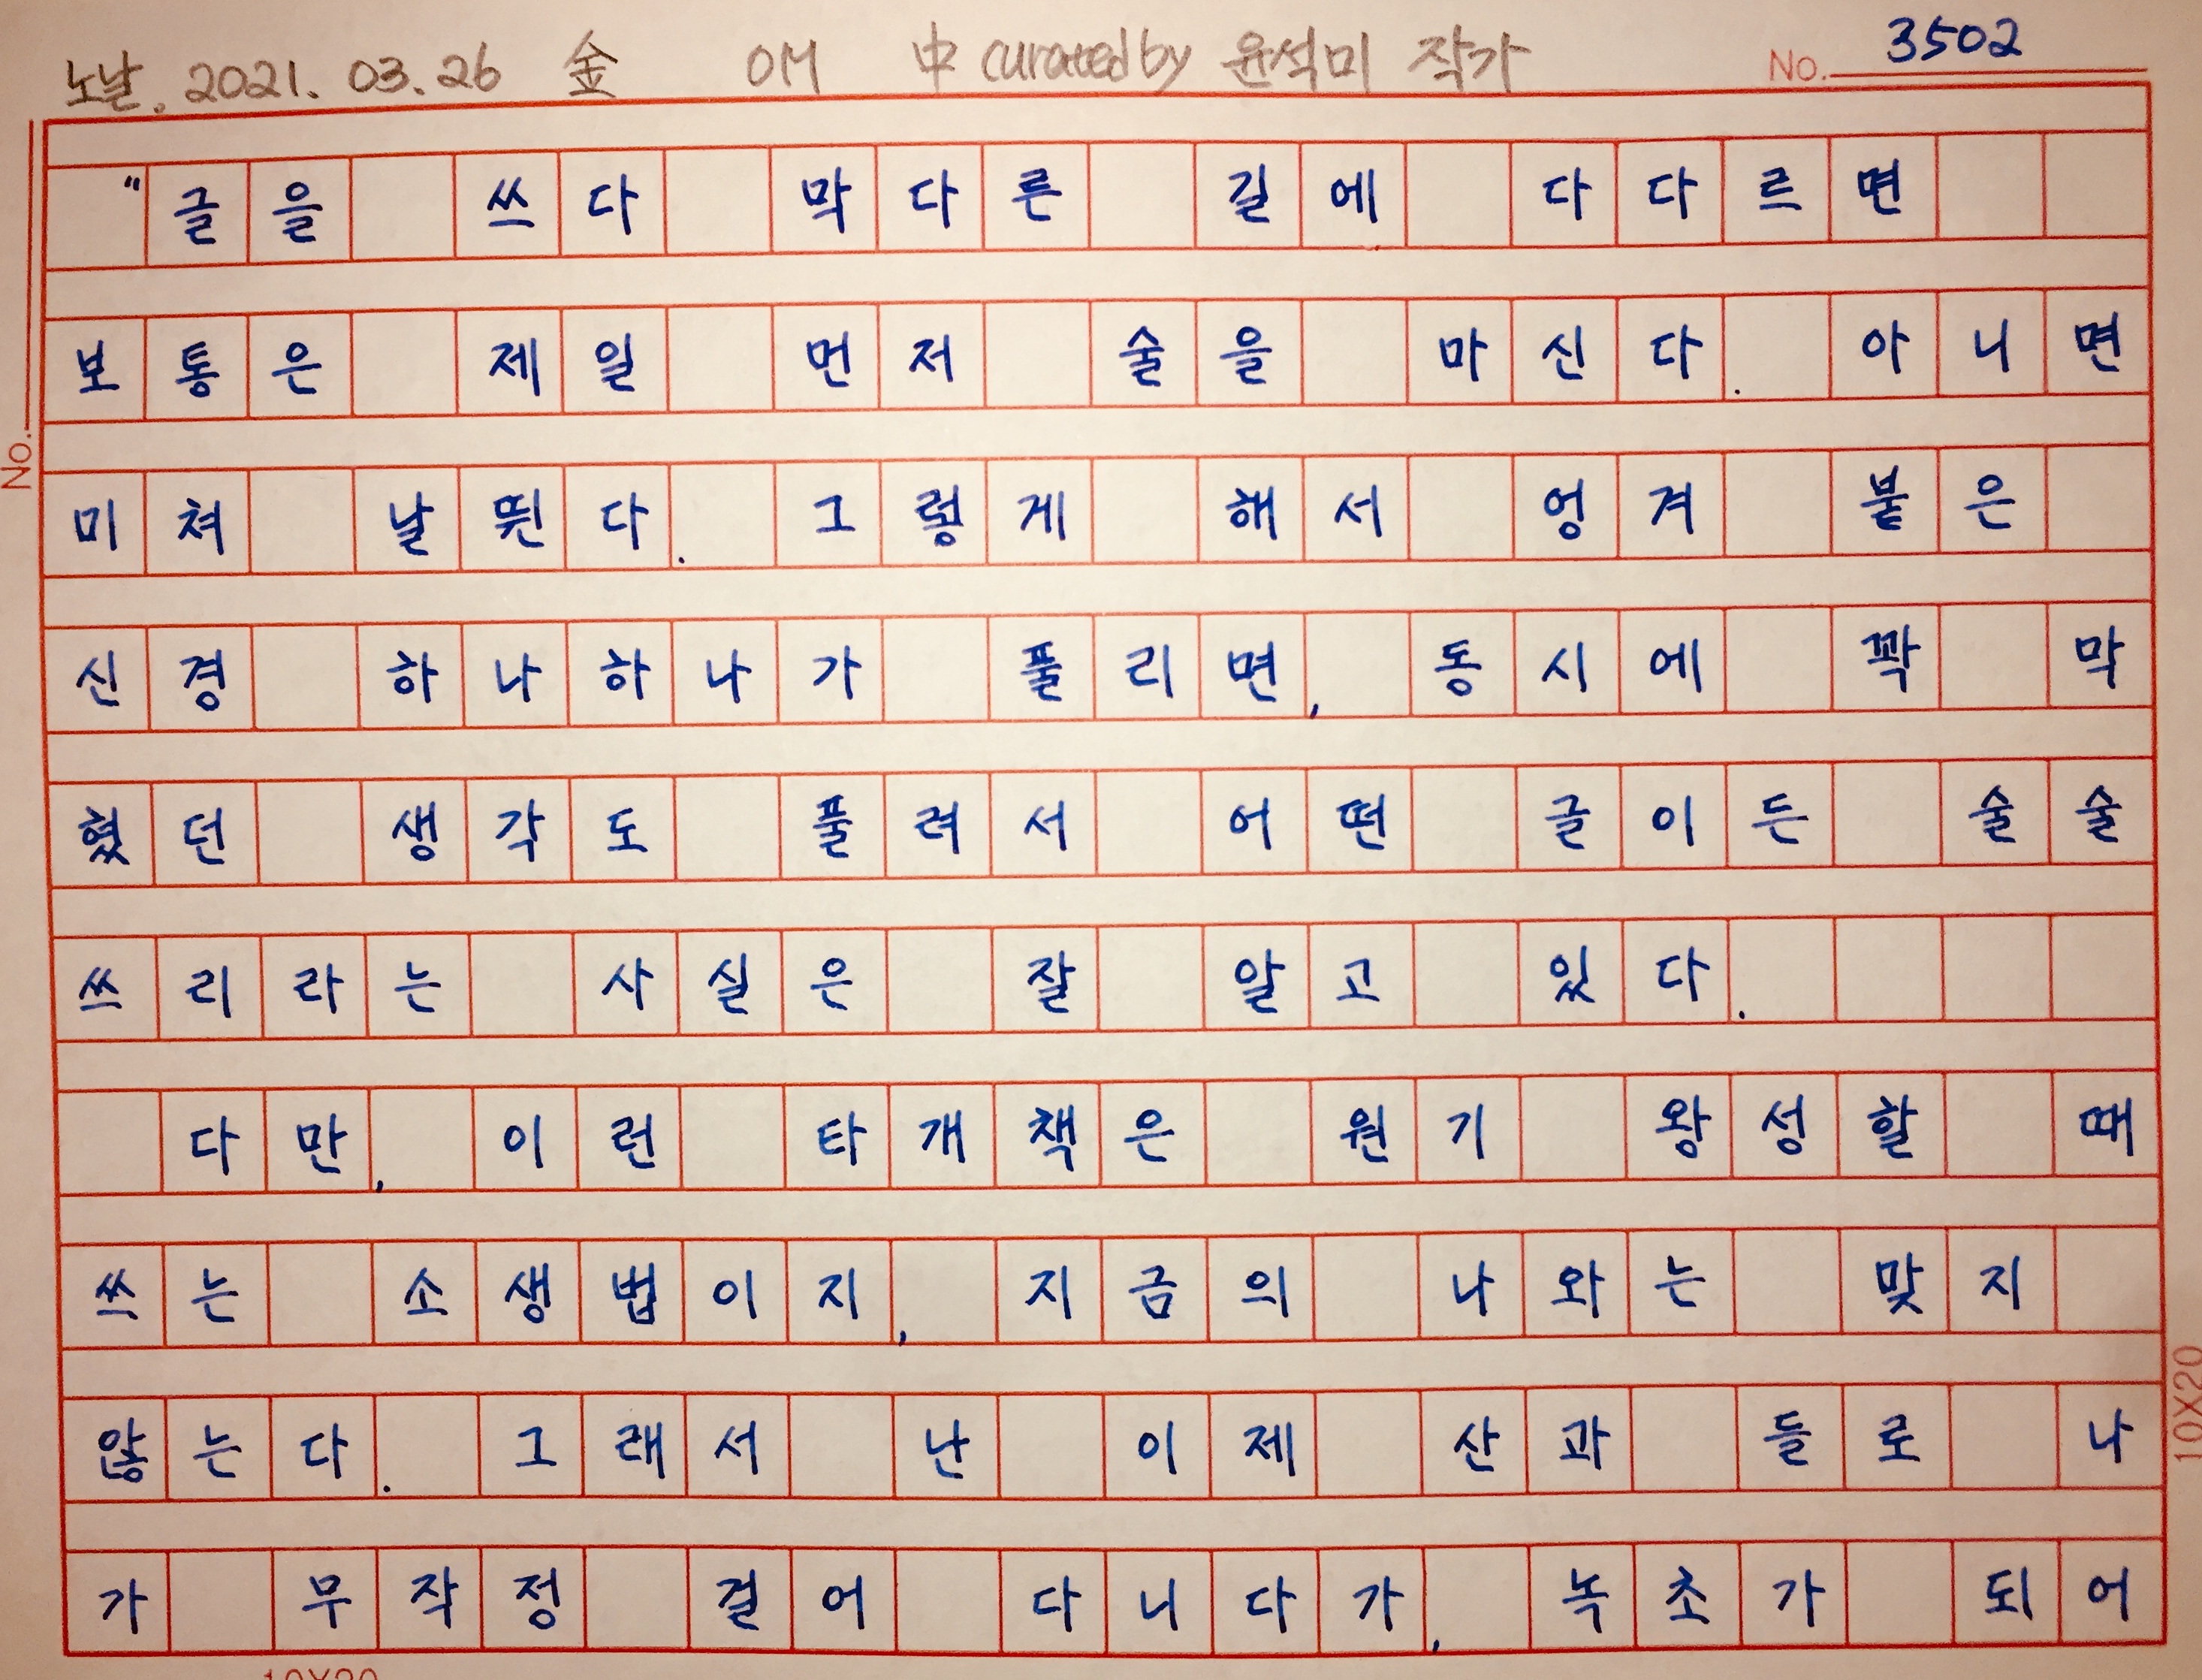 노날. 2021. 03. 26 金 OM 中 curated by 윤석미 작가
No. 3502
No.
"글을 쓰다 막다른 길에 다다르면
보통은 제일 먼저 술을 마신다. 아니면
미쳐 날뛴다. 그렇게 해서 엉겨 붙은
신경 하나하나가 풀리면, 동시에 꽉 막
혔던 생각도 풀려서 어떤 글이든 술술
쓰리라는 사실은 잘 알고 있다.
다만, 이런 타개책은 원기 왕성할 때
쓰는 소생법이지, 지금의 나와는 맞지
않는다. 그래서 난 이제 산과 들로 나
가 무작정 걸어 다니다가, 녹초가 되어
10X20
10X20